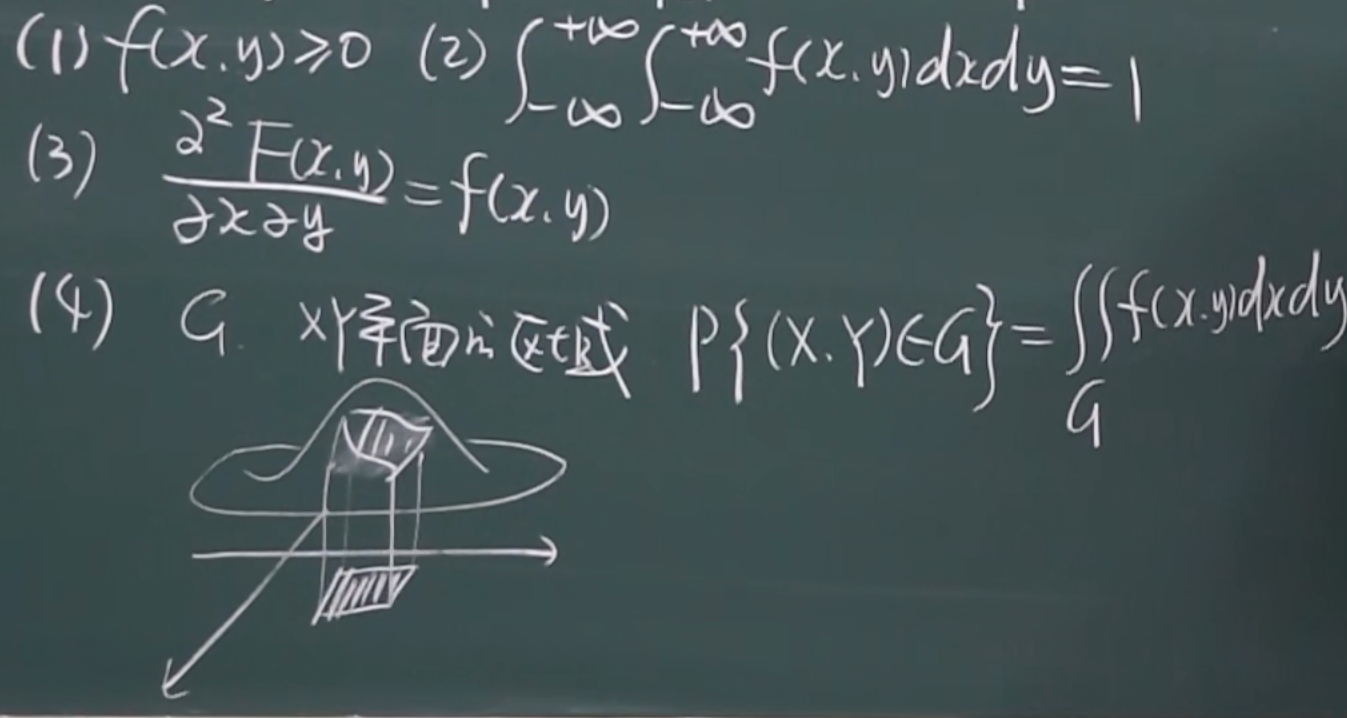 (1) f(x,y)≥0 (2) ∫_{-∞}^{+∞}∫_{-∞}^{+∞} f(x,y)dxdy=1
(3) ∂²F(x,y)/∂x∂y = f(x,y)
(4) G XY平面的区域 P{(X,Y)∈G}=∬_G f(x,y)dxdy